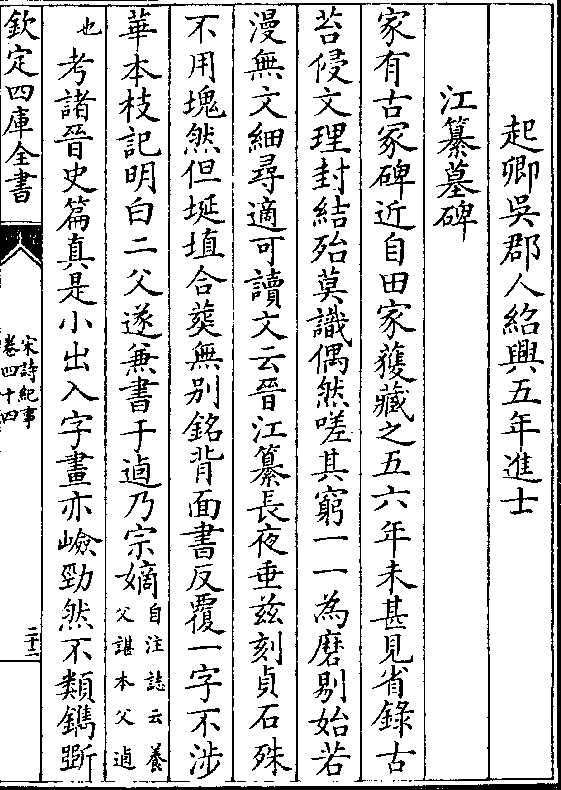 起卿吳郡人紹興五年進士
江纂墓碑
家有古冢碑近自田家獲藏之五六年未甚見省錄古
苔侵文理封結殆莫識偶然嗟其窮一一為磨剔始若
漫無文細尋適可讀文云晉江纂長夜垂兹刻貞石殊
不用塊然但埏埴合葬無别銘背面書反覆一字不涉
華本枝記明白二父遂兼書于逌乃宗嫡自注誌云養父諶本父逌
也考諸晉史篇真是小出入字畫亦嶮勁然不類鐫斵
欽定四庫全書
宋詩紀事
卷四十四
二十二